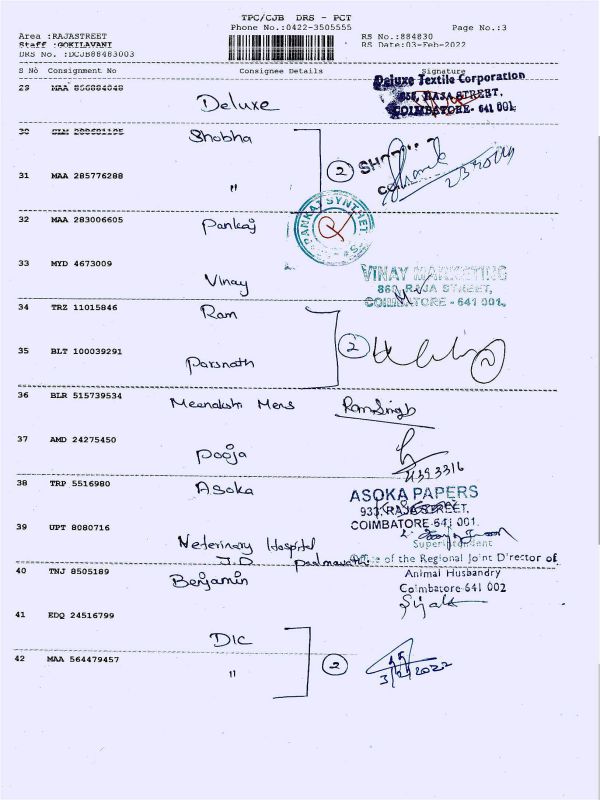 TPC/CJB DRS - PCT
Phone No.:0422-3505555 Page No.:3
Area :RAJASTREET RS No.:884830
Staff :GOKILAVANI RS Date:03-Feb-2022
DRS No. :DCJB88483003
S No Consignment No Consignee Details Signature
29 MAA 856884048 Deluxe
Deluxe Textile Corporation
RAJA STREET,
COIMBATORE - 641 001.
30 Shobha
31 MAA 285776288 "
2
32 MAA 283006605 Pankaj
PANKAJ SYNTHET
33 MYD 4673009 Vinay
VINAY MARKETING
RAJA STREET,
COIMBATORE - 641 001.
34 TRZ 11015846 Ram
35 BLT 100039291 Parsnath
2
36 BLR 515739534 Meenakshi Mens Ramsingh
37 AMD 24275450 Pooja
38 TRP 5516980 Asoka
ASOKA PAPERS
937, RAJA STREET,
COIMBATORE-641 001.
39 UPT 8080716 Veterinary Hospital
J.D Padmavathi
Superintendent
Office of the Regional Joint Director of
Animal Husbandry
Coimbatore 641 002
40 TNJ 8505189 Benjamin
41 EDQ 24516799 DIC
42 MAA 564479457 "
2
3/2/2022